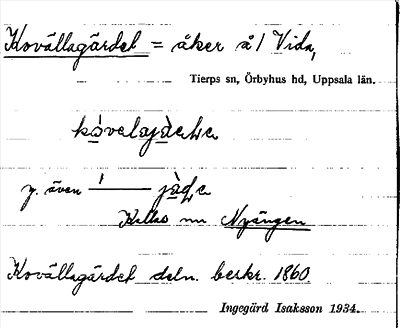 Kovällagärdet = åker å / Vida,
Tierps sn, Örbyhus hd, Uppsala län.
y. även
Kallas nu Nyängen
Kovällagärdet deln. beskr. 1860
Ingegärd Isaksson 1934.